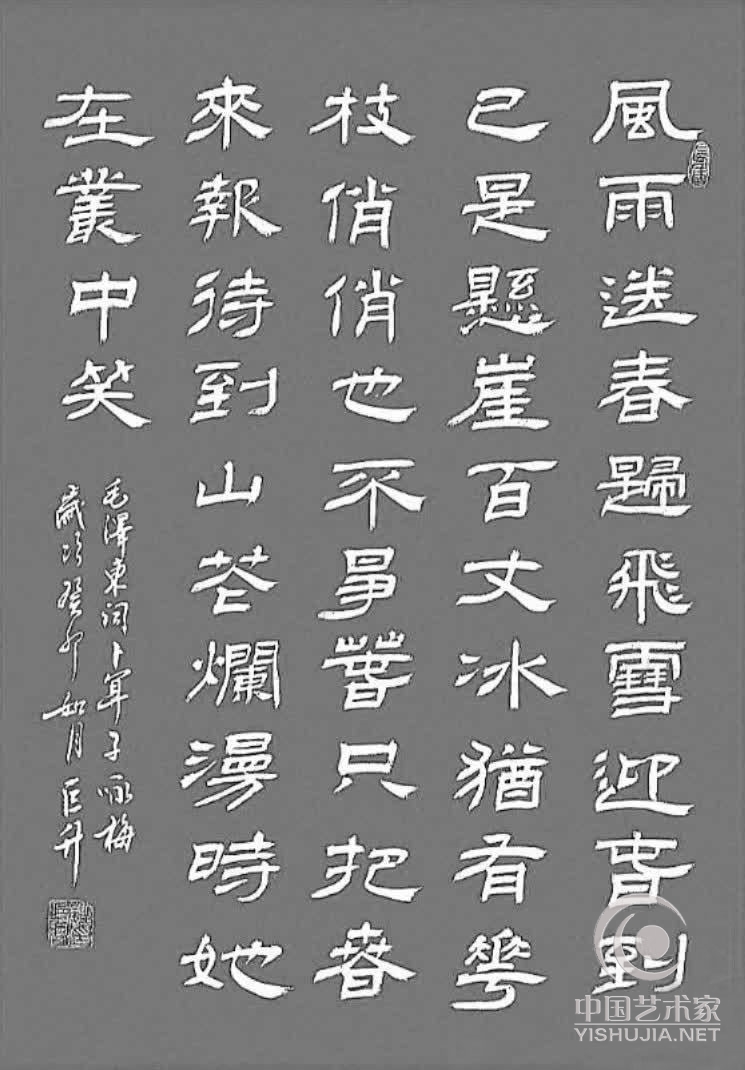 風雨送春歸飛雪迎春到
已是懸崖百丈冰猶有花
枝俏俏也不爭春只把春
來報待到山花爛漫時她
在叢中笑
毛澤東詞卜算子咏梅
歲次癸卯如月巨升
中国艺术家
YISHUJIA.NET